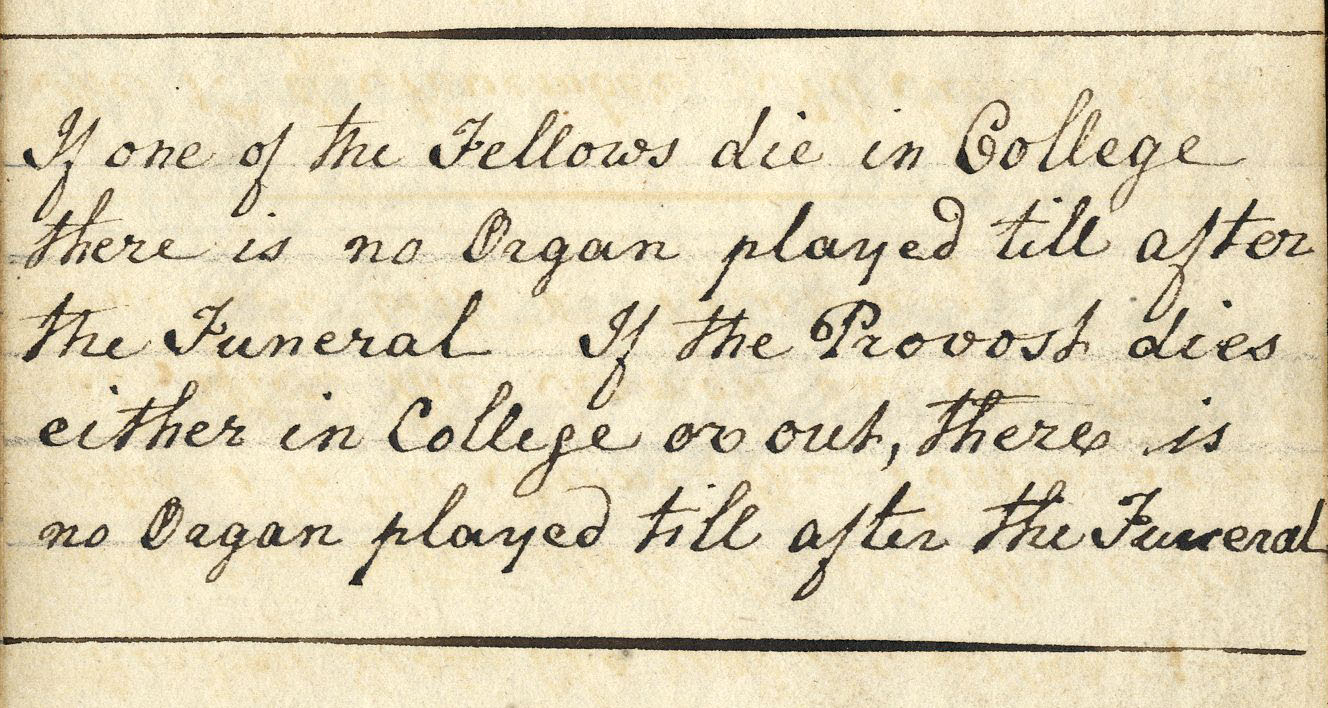 If one of the Fellows die in College
there is no Organ played till after
the Funeral If the Provost dies
either in College or out, there is
no Organ played till after the Funeral